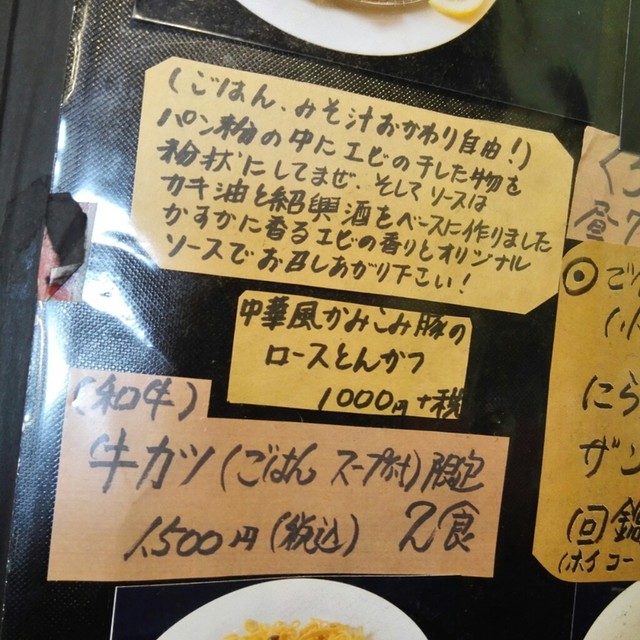 (ごはん、みそ汁おかわり自由!)
パン粉の中にエビの干した物を
粉状にしてまぜ、そしてソースは
カキ油と紹興酒をベースに作りました
かすかに香るエビの香りとオリジナル
ソースでお召しあがり下さい!
中華風かみこみ豚の
ロースとんかつ
1000円+税
(和牛)
牛カツ(ごはん スープ付)限定
1,500円(税込) 2食
昼
にら
ザン
(回)鍋
(ホイコー